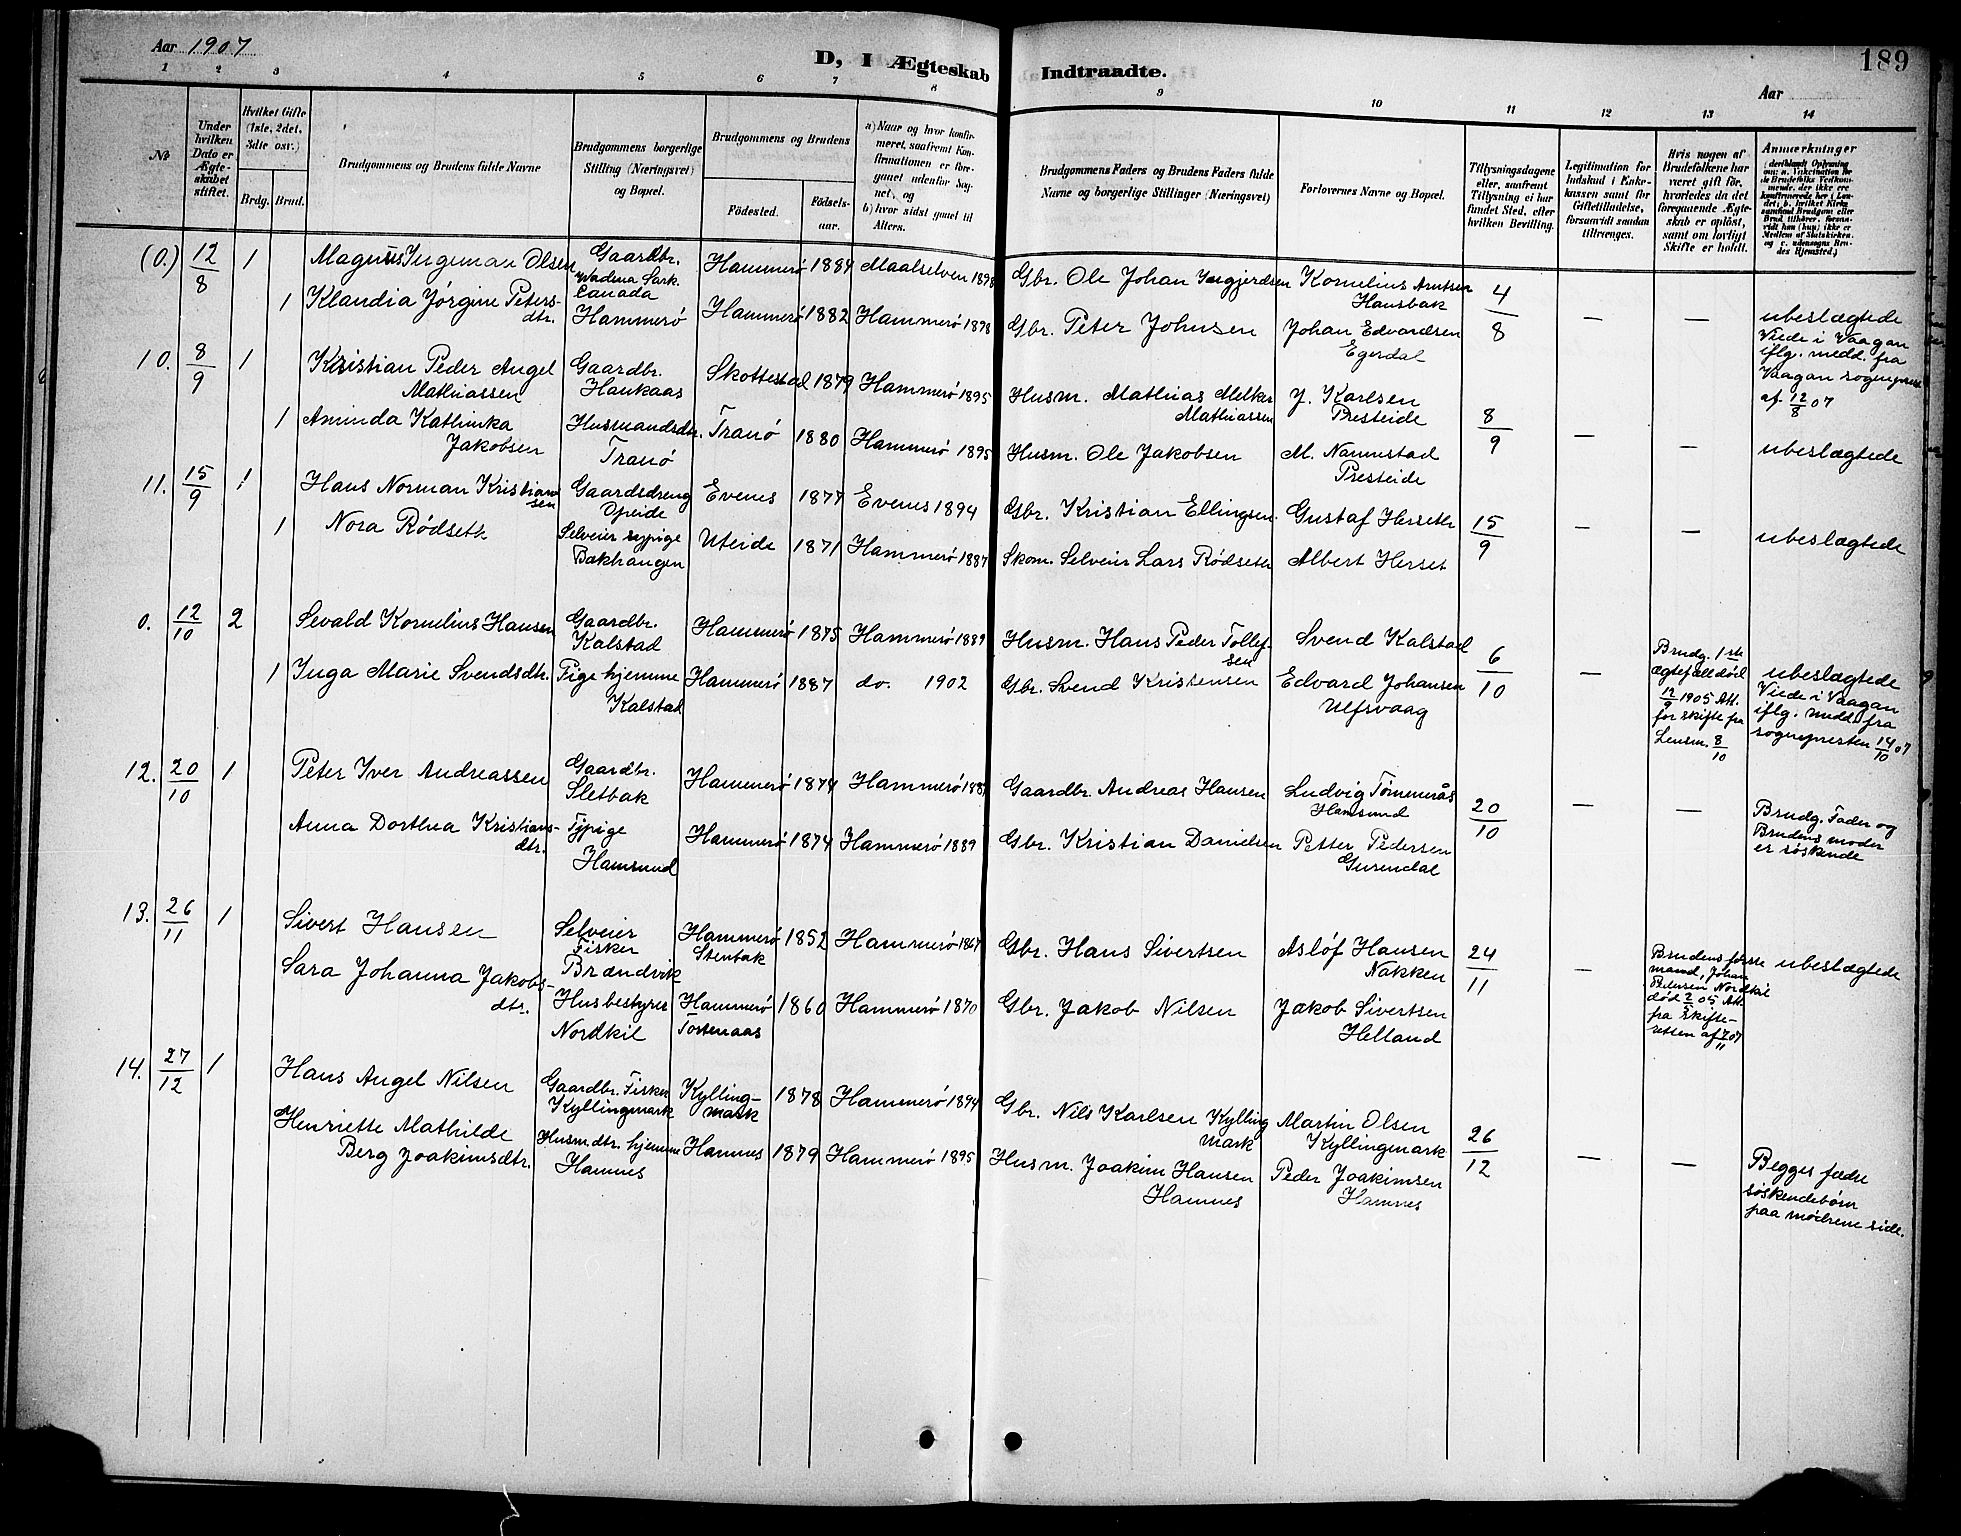 Aar 1907
D, I Ægteskab Indtraadte.
189
Aar
1 2 3 4 5 6 7 8 9 10 11 12 13 14
No
Under hvilken Dato er Ægteskabet stiftet.
Hvilket Gifte (1ste, 2det, 3die osv.)
Brdg. Brud.
Brudgommens og Brudens fulde Navne
Brudgommens borgerlige Stilling (Næringsvei) og Bopæl.
Brudgommens og Brudens
Fødested. Fødselsaar.
a) Naar og hvor konfirmeret, saafremt Konfirmationen er foregaaet udenfor Sognet, og
b) hvor sidst gaaet til Alters.
Brudgommens Faders og Brudens Faders fulde Navne og borgerlige Stillinger (Næringsvei)
Forlovernes Navne og Bopæl.
Tillysningsdagene eller, saafremt Tillysning ei har fundet Sted, efter hvilken Bevilling.
Legitimation for Indskud i Enkekassen samt for Giftetilladelse, forsaavidt saadan tiltrænges.
Hvis nogen af Brudefolkene har været gift før, hvorledes da det foregaaende Ægteskab er opløst, samt om lovligt Skifte er holdt.
Anmærkninger
(0.) 12/8 1 Magnus Ingeman Olsen Gaardbr. Wadena Sask. Canada Hammerø 1884 Maalselven 1898 Gbr. Ole Johan Ingjerdsen Kornelius Arntsen Hansbak 4/8 — — ubeslægtede
1 Klandia Jørgine Petersdtr. Hammerø Hammerø 1882 Hammerø 1898 Gbr. Peter Johnsen Johan Edvardsen Egerdal
Viede i Vaagan iflg. medd. fra Vaagan sogneprest af 12/8 07
10. 8/9 1 Kristian Peder Angel Mathiassen Gaardbr. Haukaas Skottestad 1879 Hammerø 1895 Husm. Mathias Melker Mathiassen J. Karlsen Presteide 8/9 — — ubeslægtede
1 Aminda Kathinka Jakobsen Husmandsdtr. Tranø Tranø 1880 Hammerø 1895 Husm. Ole Jakobsen M. Nannestad Presteide
11. 15/9 1 Hans Norman Kristiansen Gaardsdreng Opeide Evenes 1877 Evenes 1894 Gbr. Kristian Ellingsen Gustaf Herseth 15/9 — — ubeslægtede
1 Nora Rødseth Selveier sypige Bakhaugen Uteide 1871 Hammerø 1887 Skom. Selveier Lars Rødseth Albert Herset
0. 12/10 2 Sevald Kornelius Hansen Gaardbr. Kalstad Hammerø 1875 Hammerø 1889 Husm. Hans Peder Tollefsen Svend Kalstad 6/10 —
1 Inga Marie Svendsdtr. Pige hjemme Kalstad Hammerø 1887 do. 1902 Gbr. Svend Kristensen Edvard Johansen Ulfsvaag
Brudg. 1ste ægtefælle død 12/9 1905 Att. for skifte fra Lensm. 8/10
ubeslægtede Viede i Vaagan iflg. medd. fra sognepresten 14/10 07
12. 20/10 1 Peter Iver Andreassen Gaardbr. Sletbak Hammerø 1874 Hammerø Gaardbr. Andreas Hansen Ludvig Tømmerås Hamsund 20/10 — —
Anna Dorthea Kristiansdtr. Typige Hamsund Hammerø 1874 Hammerø 1889 Gbr. Kristian Danielsen Petter Pedersen Gusendal
Brudg. Fader og Brudens moder er søskende
13. 26/11 1 Sivert Hansen Selveier Fisker Brændvik Hammerø Stenbak 1852 Hammerø 1867 Gbr. Hans Sivertsen Asløf Hansen Nakken 24/11 —
Sara Johanna Jakobsdtr. Husbestyrer Nordkil Hammerø Tostenaas 1860 Hammerø 1870 Gbr. Jakob Nilsen Jakob Sivertsen Helland
Brudens første mand, Johan Petersen Nordkil død 05 Att. fra skifteretten af 11 07
ubeslægtede
14. 27/12 1 Hans Angel Nilsen Gaardbr. Fisker Kyllingmark Kyllingmark 1878 Hammerø 1894 Gbr. Nils Karlsen Kyllingmark Martin Olsen Kyllingmark 26/12 — —
Henriette Mathilde Berg Joakimsdtr. Husm.dtr. hjemme Hamnes Hamnes 1879 Hammerø 1895 Husm. Joakim Hansen Hamnes Peder Joakimsen Hamnes
Begges fædre søskendebørn paa mødrene side.